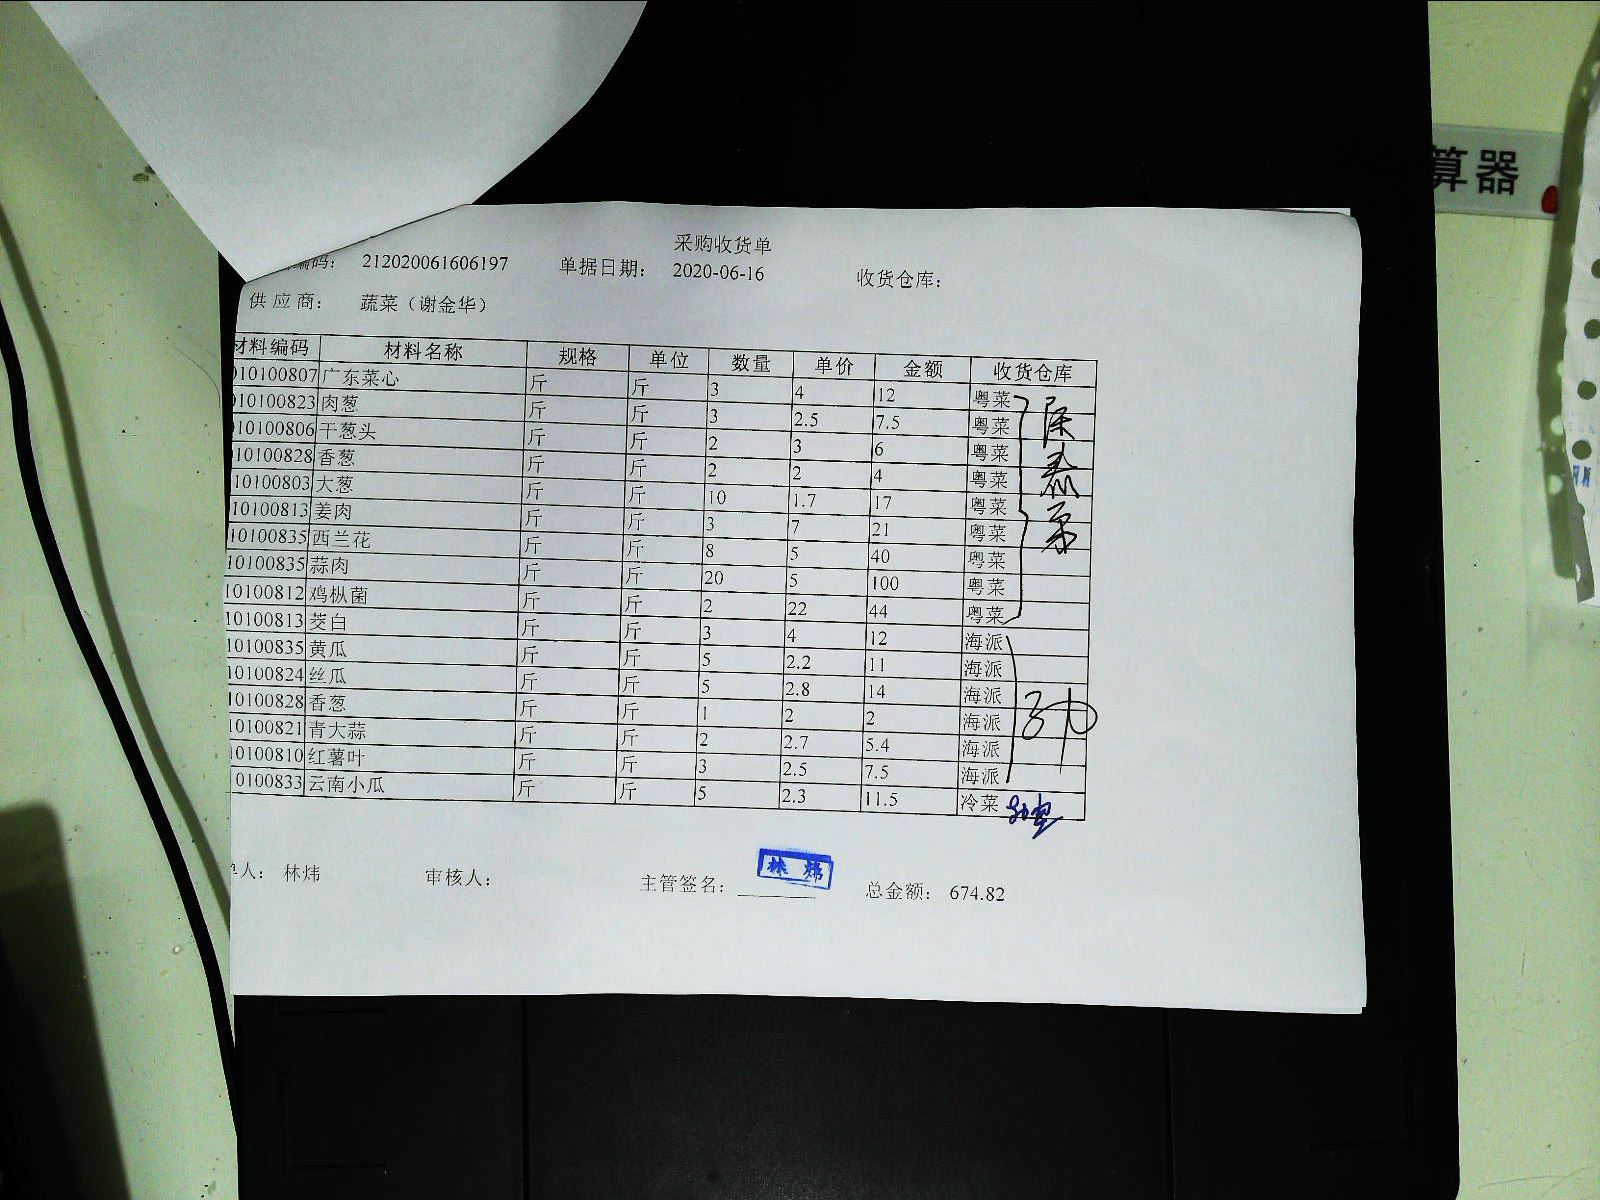 算器
采购收货单
编码： 212020061606197 单据日期： 2020-06-16 收货仓库：
供应商： 蔬菜（谢金华）
材料编码 材料名称 规格 单位 数量 单价 金额 收货仓库
010100807 广东菜心 斤 斤 3 4 12 粤菜
010100823 肉葱 斤 斤 3 2.5 7.5 粤菜
010100806 干葱头 斤 斤 2 3 6 粤菜
010100828 香葱 斤 斤 2 2 4 粤菜
10100803 大葱 斤 斤 10 1.7 17 粤菜
10100813 姜肉 斤 斤 3 7 21 粤菜
10100835 西兰花 斤 斤 8 5 40 粤菜
10100835 蒜肉 斤 斤 20 5 100 粤菜
10100812 鸡枞菌 斤 斤 2 22 44 粤菜
10100813 茭白 斤 斤 3 4 12 海派
10100835 黄瓜 斤 斤 5 2.2 11 海派
10100824 丝瓜 斤 斤 5 2.8 14 海派
10100828 香葱 斤 斤 1 2 2 海派
10100821 青大蒜 斤 斤 2 2.7 5.4 海派
10100810 红薯叶 斤 斤 3 2.5 7.5 海派
0100833 云南小瓜 斤 斤 5 2.3 11.5 冷菜
单人： 林炜 审核人： 主管签名： 林炜 总金额： 674.82